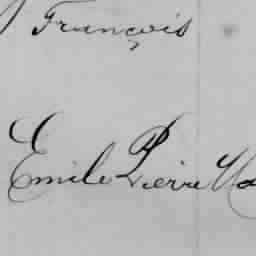 François
Emile Pierre